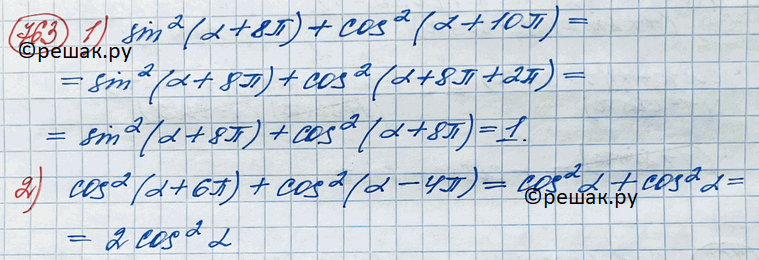 763 1) sin²(α+8π) + cos²(α+10π) =
©решак.ру
= sin²(α+8π) + cos²(α+8π+2π) =
= sin²(α+8π) + cos²(α+8π) = 1.
2) cos²(α+6π) + cos²(α-4π) = cos²α + cos²α =
©решак.ру
= 2cos²α
©решак.ру